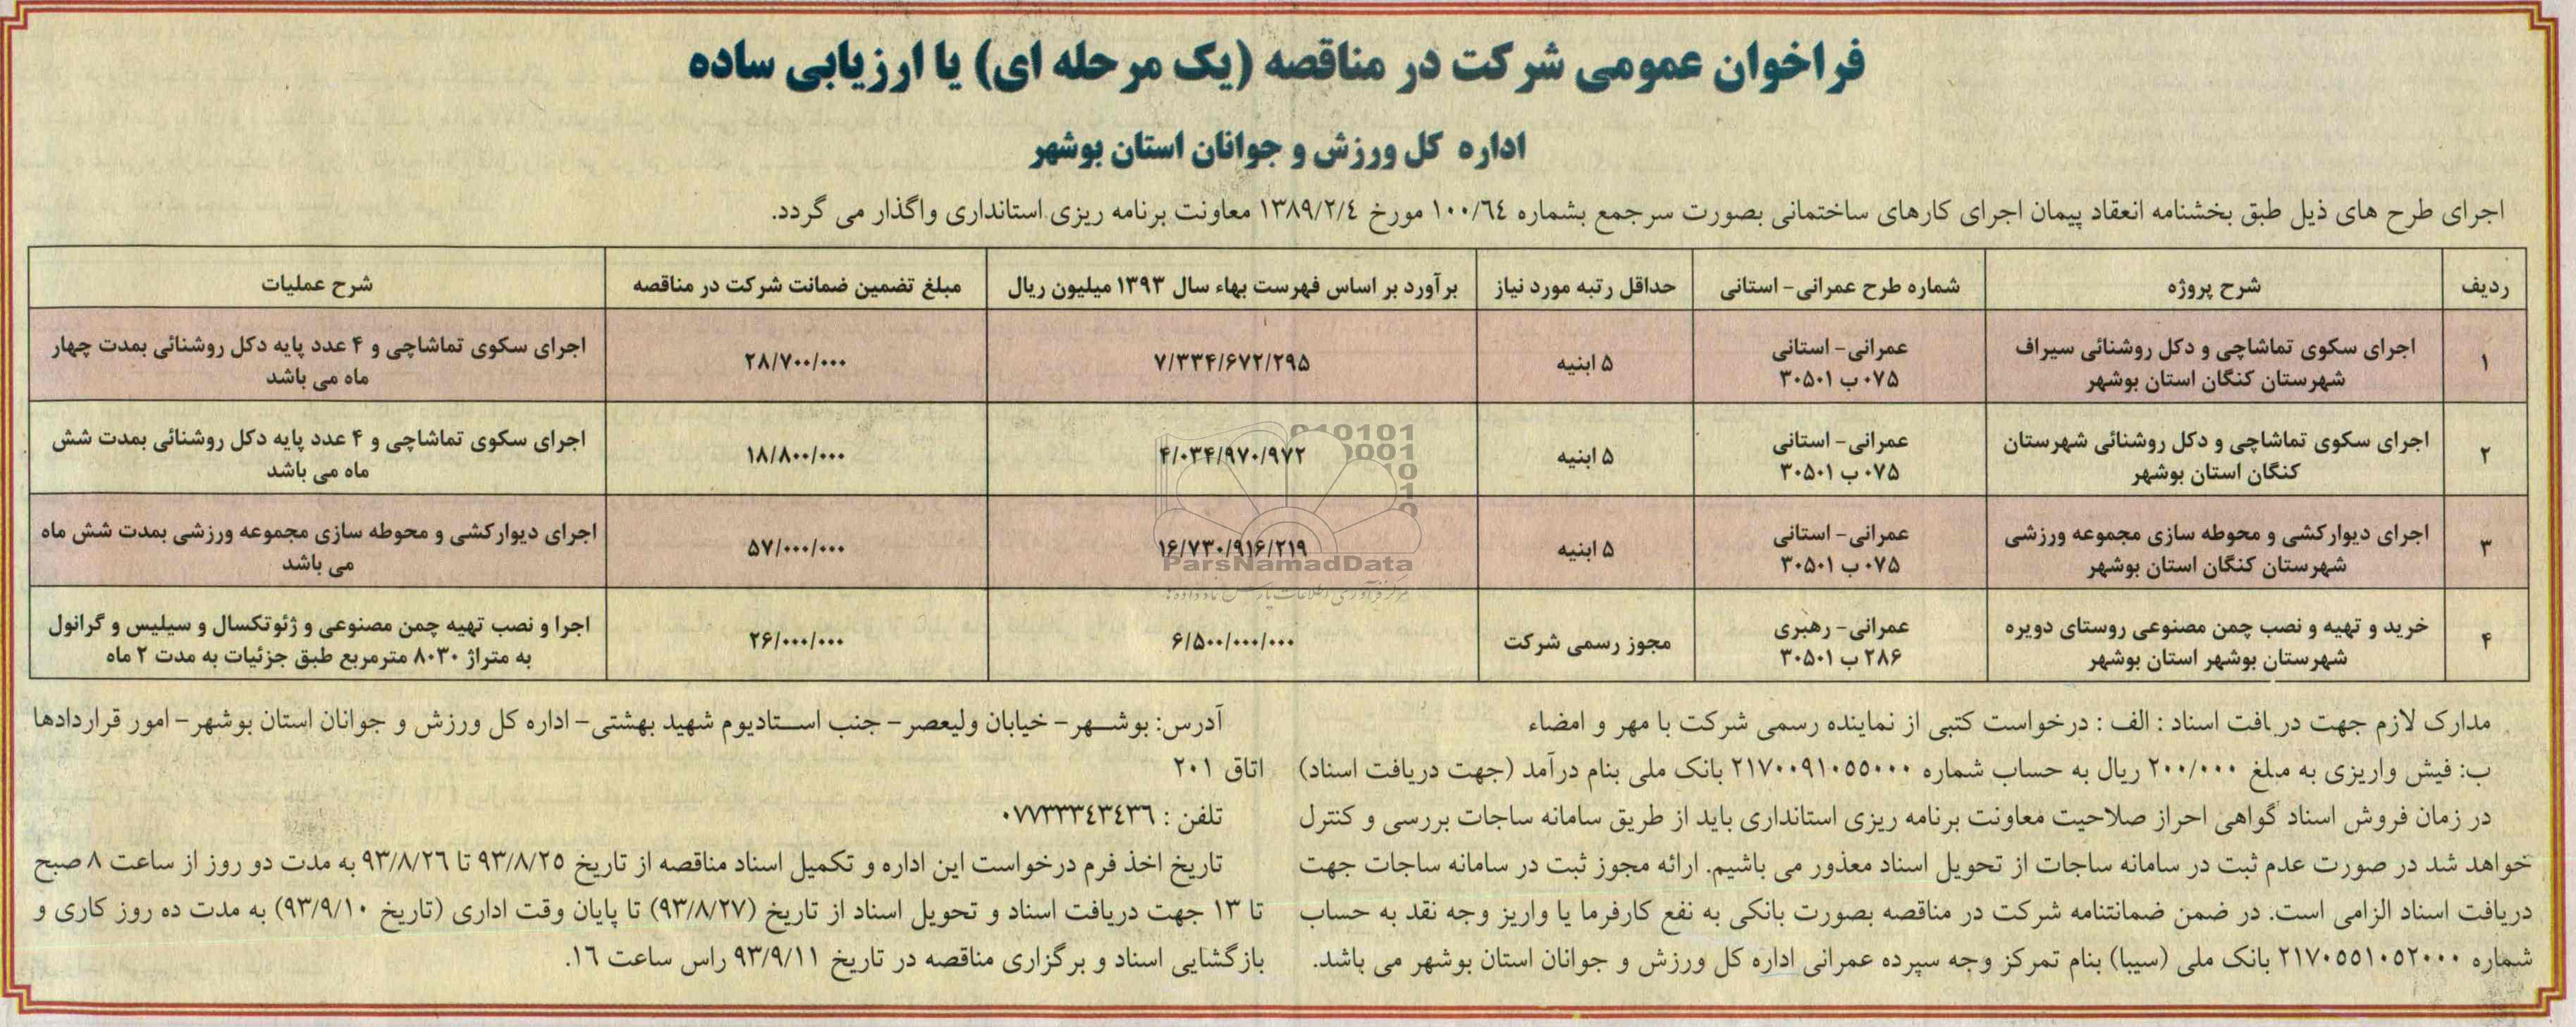 فراخوان عمومی شرکت در مناقصه (یک مرحله ای) یا ارزیابی ساده
اداره کل ورزش و جوانان استان بوشهر
اجرای طرح های ذیل طبق بخشنامه انعقاد پیمان اجرای کارهای ساختمانی بصورت سرجمع بشماره ۱۰۰/٦٤ مورخ ۱۳۸۹/۲/٤ معاونت برنامه ریزی استانداری واگذار می گردد.
ردیف شرح پروژه شماره طرح عمرانی- استانی حداقل رتبه مورد نیاز برآورد بر اساس فهرست بهاء سال ۱۳۹۳ میلیون ریال مبلغ تضمین ضمانت شرکت در مناقصه شرح عملیات
۱
اجرای سکوی تماشاچی و دکل روشنائی سیراف
شهرستان کنگان استان بوشهر
عمرانی- استانی
۰۷۵ ب ۳۰۵۰۱
۵ ابنیه
۷/۳۳۴/۶۷۲/۲۹۵
۲۸/۷۰۰/۰۰۰
اجرای سکوی تماشاچی و ۴ عدد پایه دکل روشنائی بمدت چهار
ماه می باشد
۲
اجرای سکوی تماشاچی و دکل روشنائی شهرستان
کنگان استان بوشهر
عمرانی- استانی
۰۷۵ ب ۳۰۵۰۱
۵ ابنیه
۴/۰۳۴/۹۷۰/۹۷۲
۱۸/۸۰۰/۰۰۰
اجرای سکوی تماشاچی و ۴ عدد پایه دکل روشنائی بمدت شش
ماه می باشد
۳
اجرای دیوارکشی و محوطه سازی مجموعه ورزشی
شهرستان کنگان استان بوشهر
عمرانی- استانی
۰۷۵ ب ۳۰۵۰۱
۵ ابنیه
۱۶/۷۳۰/۹۱۶/۲۱۹
۵۷/۰۰۰/۰۰۰
اجرای دیوارکشی و محوطه سازی مجموعه ورزشی بمدت شش ماه
می باشد
۴
خرید و تهیه و نصب چمن مصنوعی روستای دویره
شهرستان بوشهر استان بوشهر
عمرانی- رهبری
۲۸۶ ب ۳۰۵۰۱
مجوز رسمی شرکت
۶/۵۰۰/۰۰۰/۰۰۰
۲۶/۰۰۰/۰۰۰
اجرا و نصب تهیه چمن مصنوعی و ژئوتکسال و سیلیس و گرانول
به متراژ ۸۰۳۰ مترمربع طبق جزئیات به مدت ۲ ماه
010101
0001
10
1
0
ParsNamadData
مرکز فرآوری اطلاعات پارس نماد داده ها
مدارک لازم جهت دریافت اسناد : الف : درخواست کتبی از نماینده رسمی شرکت با مهر و امضاء
ب: فیش واریزی به مبلغ ۲۰۰/۰۰۰ ریال به حساب شماره ۲۱۷۰۰۹۱۰۵۵۰۰۰ بانک ملی بنام درآمد (جهت دریافت اسناد)
در زمان فروش اسناد گواهی احراز صلاحیت معاونت برنامه ریزی استانداری باید از طریق سامانه ساجات بررسی و کنترل
خواهد شد در صورت عدم ثبت در سامانه ساجات از تحویل اسناد معذور می باشیم. ارائه مجوز ثبت در سامانه ساجات جهت
دریافت اسناد الزامی است. در ضمن ضمانتنامه شرکت در مناقصه بصورت بانکی به نفع کارفرما یا واریز وجه نقد به حساب
شماره ۲۱۷۰۵۵۱۰۵۲۰۰۰ بانک ملی (سیبا) بنام تمرکز وجه سپرده عمرانی اداره کل ورزش و جوانان استان بوشهر می باشد.
آدرس: بوشهر- خیابان ولیعصر- جنب استادیوم شهید بهشتی- اداره کل ورزش و جوانان استان بوشهر- امور قراردادها
اتاق ۲۰۱
تلفن : ۰۷۷۳۳۳٤۳٤۳٦
تاریخ اخذ فرم درخواست این اداره و تکمیل اسناد مناقصه از تاریخ ۹۳/۸/۲٥ تا ۹۳/۸/۲٦ به مدت دو روز از ساعت ۸ صبح
تا ۱۳ جهت دریافت اسناد و تحویل اسناد از تاریخ (۹۳/۸/۲۷) تا پایان وقت اداری (تاریخ ۹۳/۹/۱۰) به مدت ده روز کاری و
بازگشایی اسناد و برگزاری مناقصه در تاریخ ۹۳/۹/۱۱ راس ساعت ۱٦.